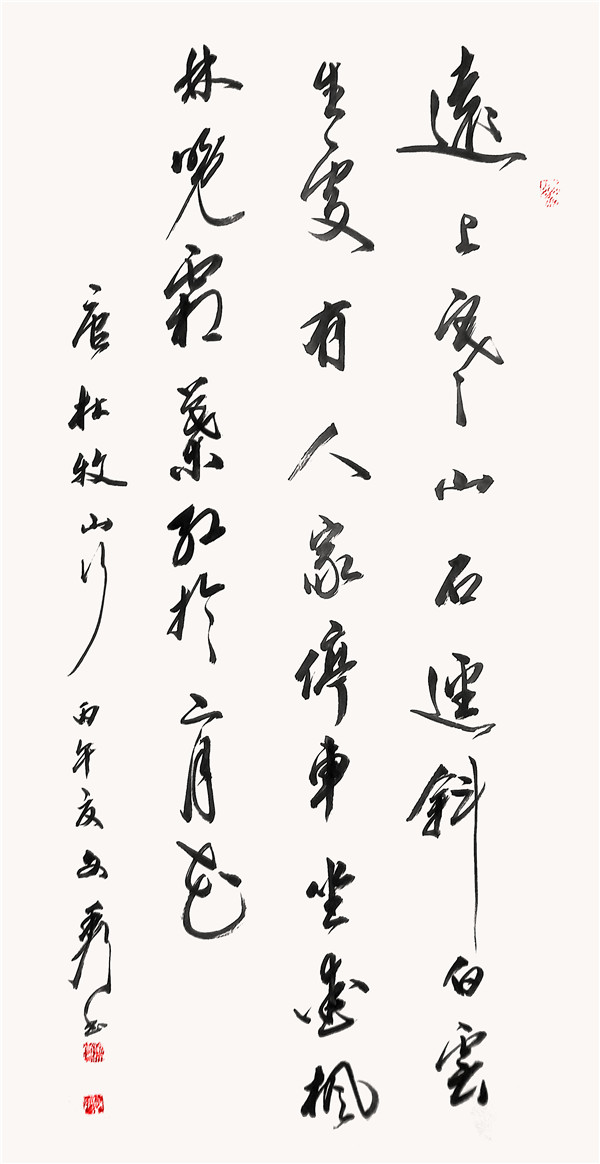 遠上寒山石逕斜白雲
生處有人家停車坐愛楓
林晚霜葉紅於二月花
唐杜牧山行 丙午夏 書